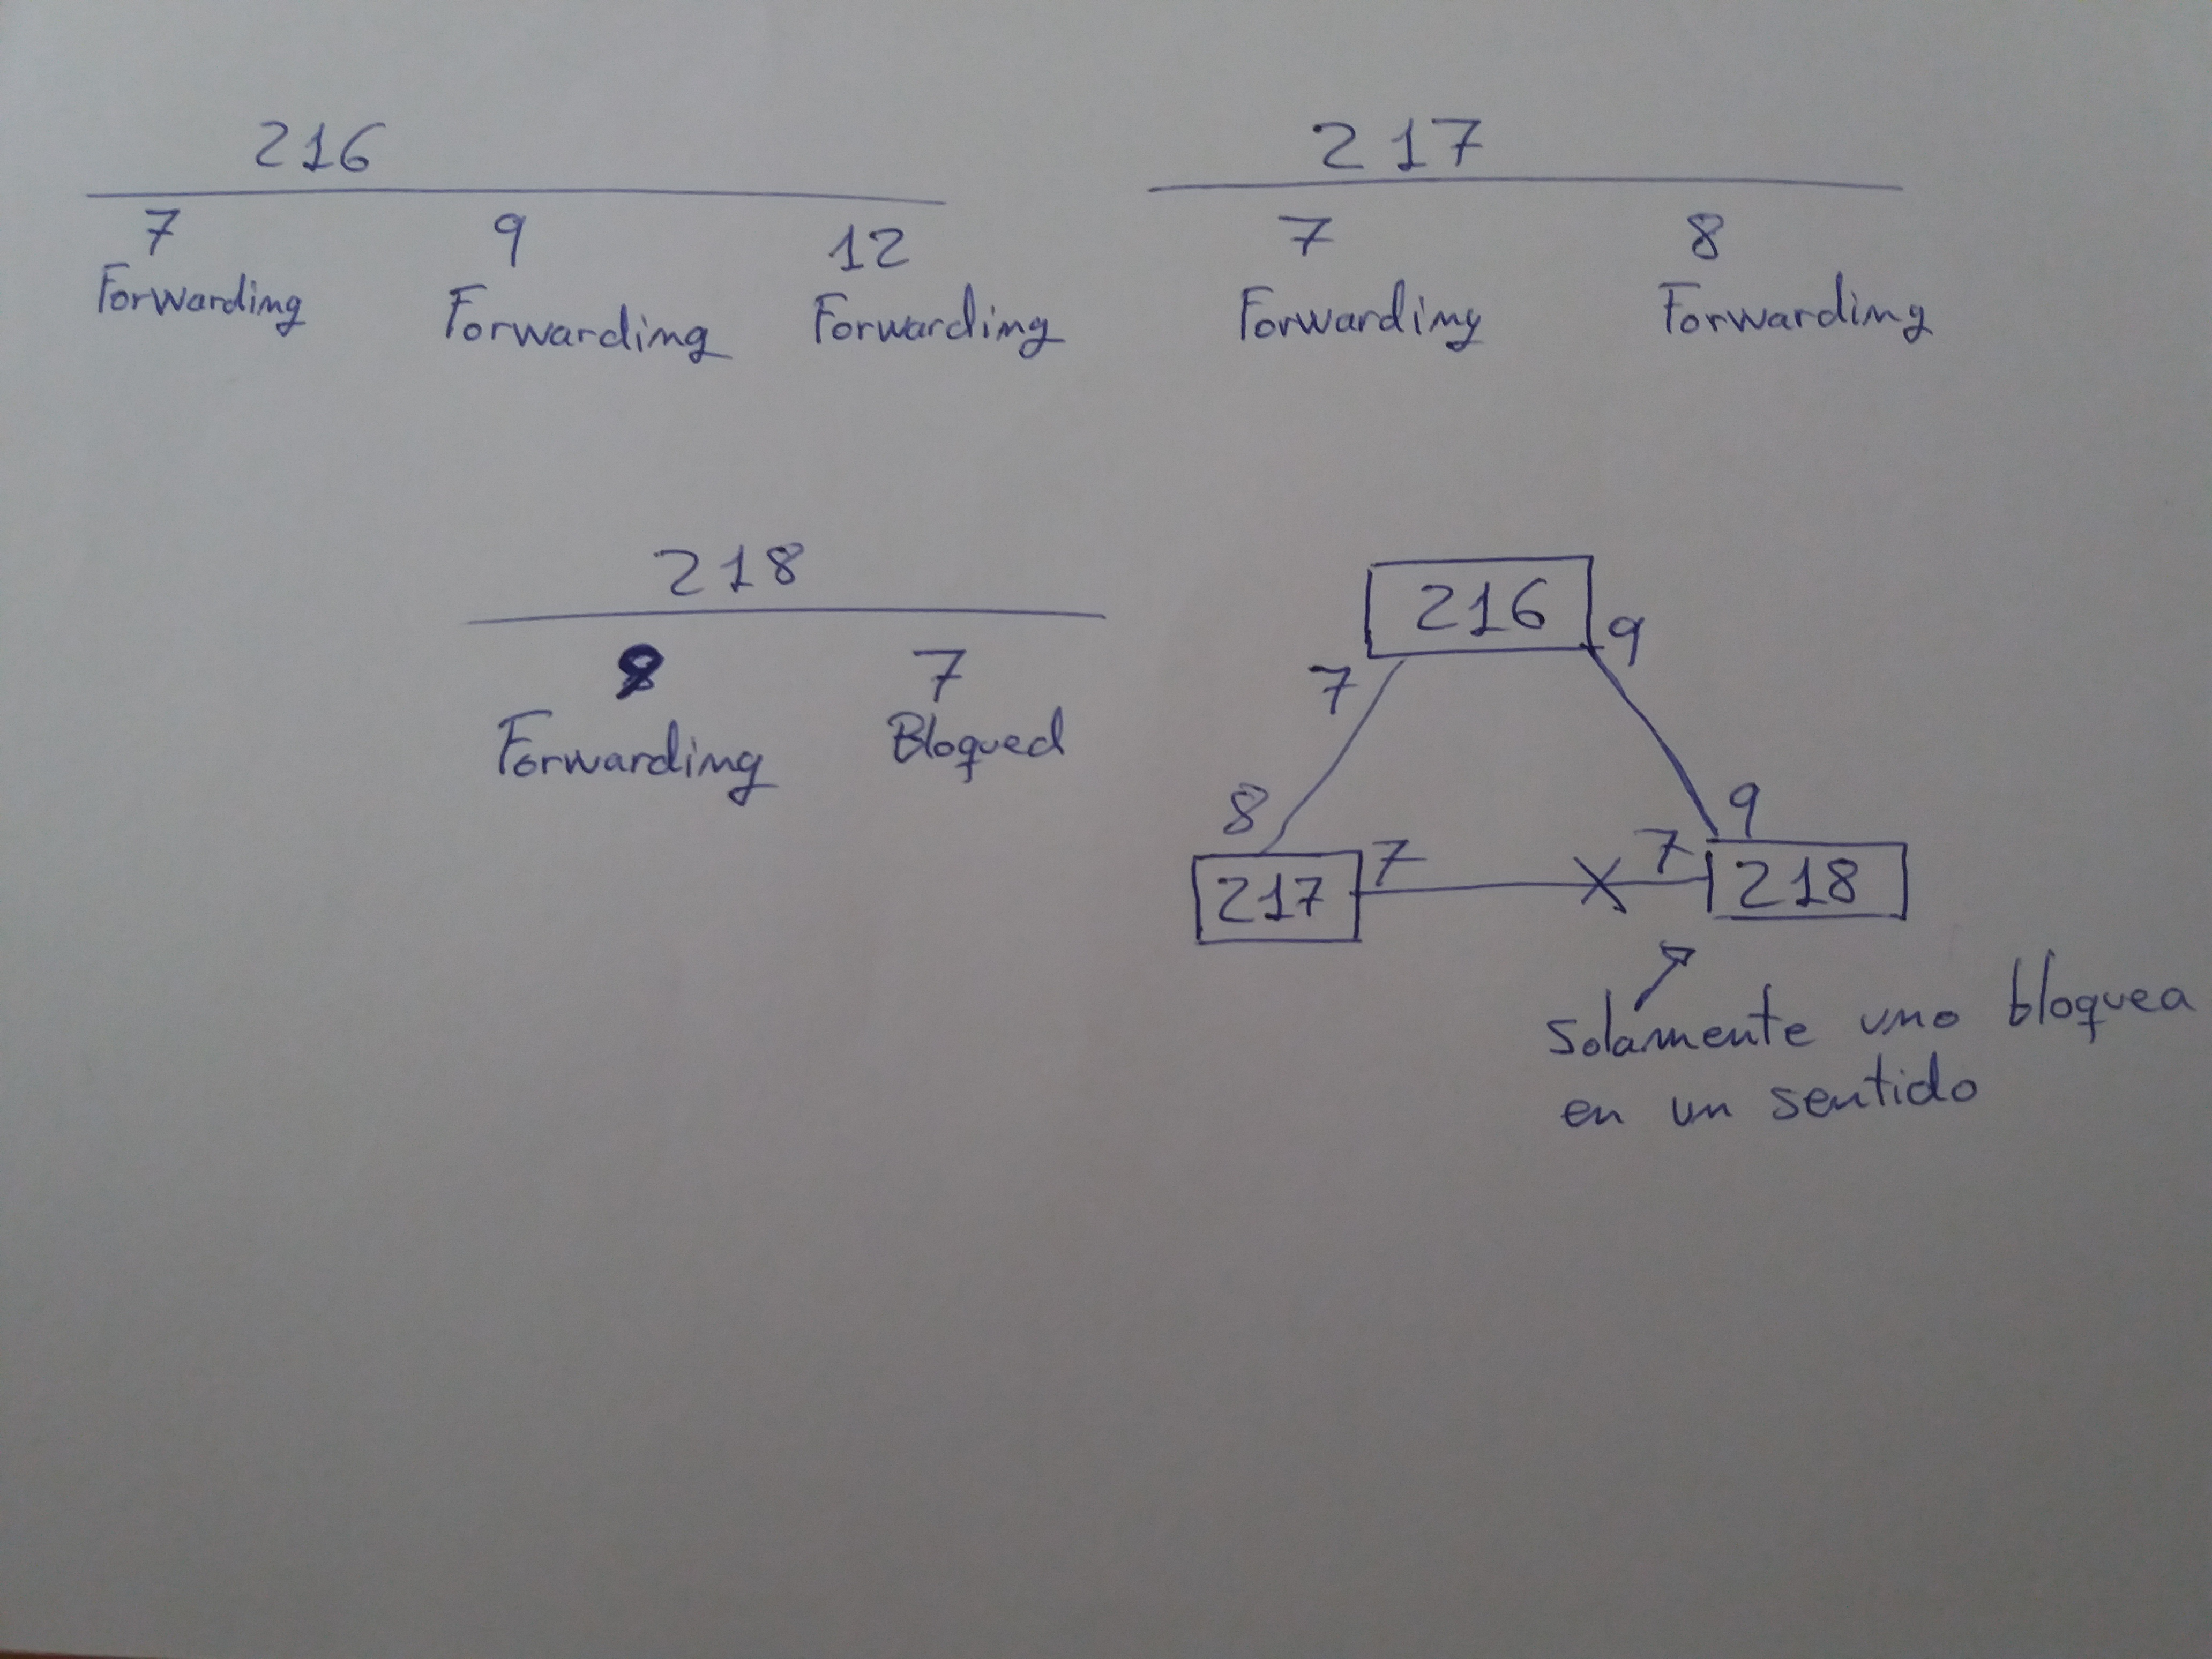 216
7 9 12
Forwarding Forwarding Forwarding
217
7 8
Forwarding Forwarding
218
9 7
Forwarding Bloqued
216
9
7
8
9
7
7
217
218
Solamente uno bloquea
en un sentido